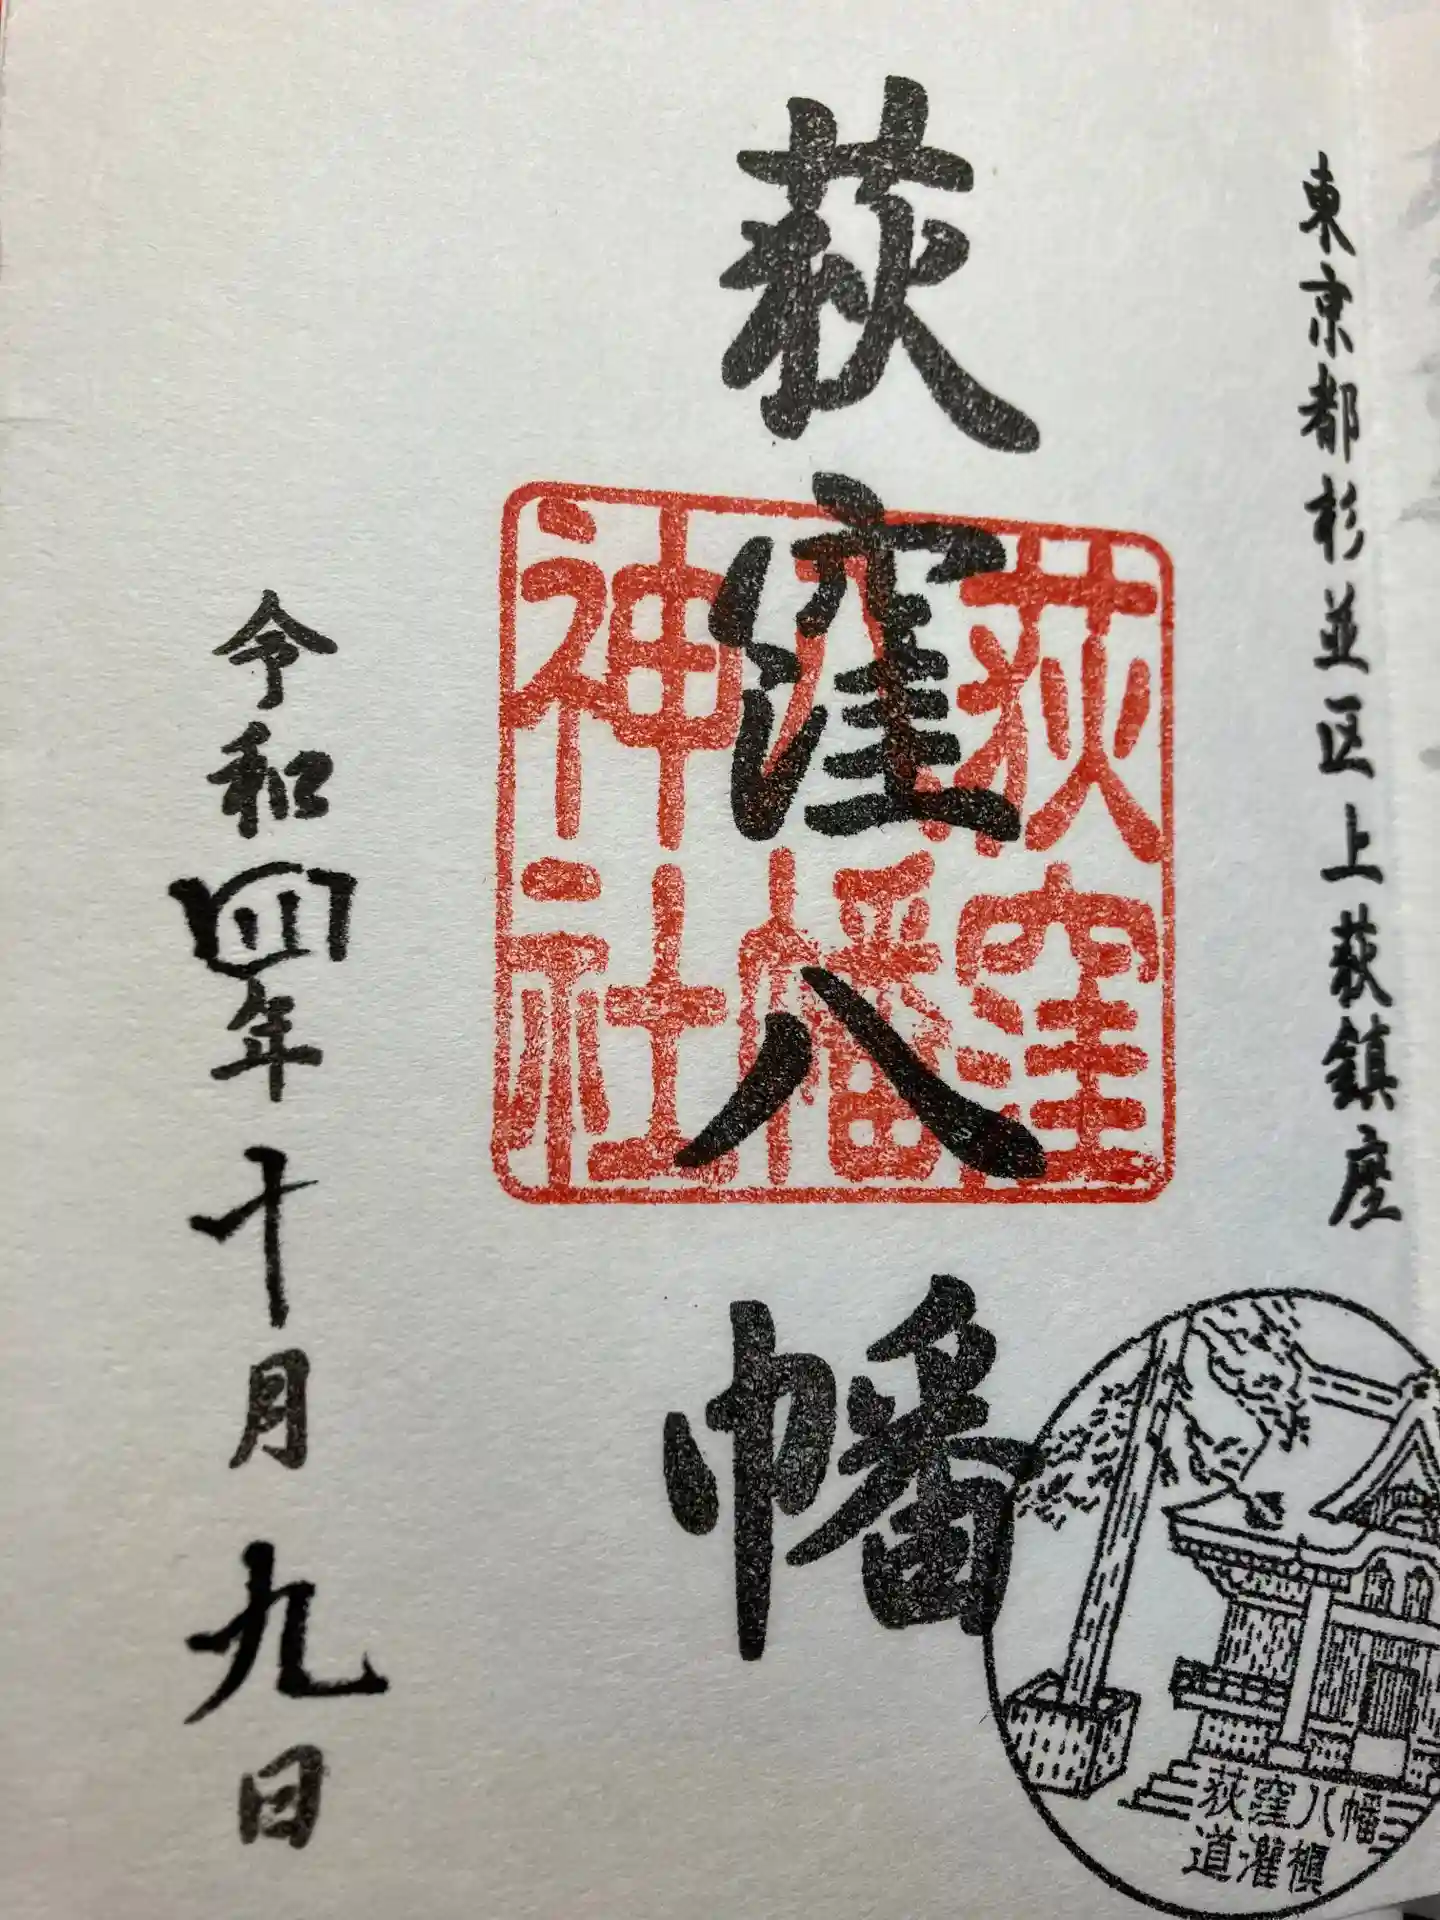 東京都杉並区上荻鎮座
荻窪八幡
荻窪
八幡
神社
令和四年十月九日
荻窪八幡
道灌槇